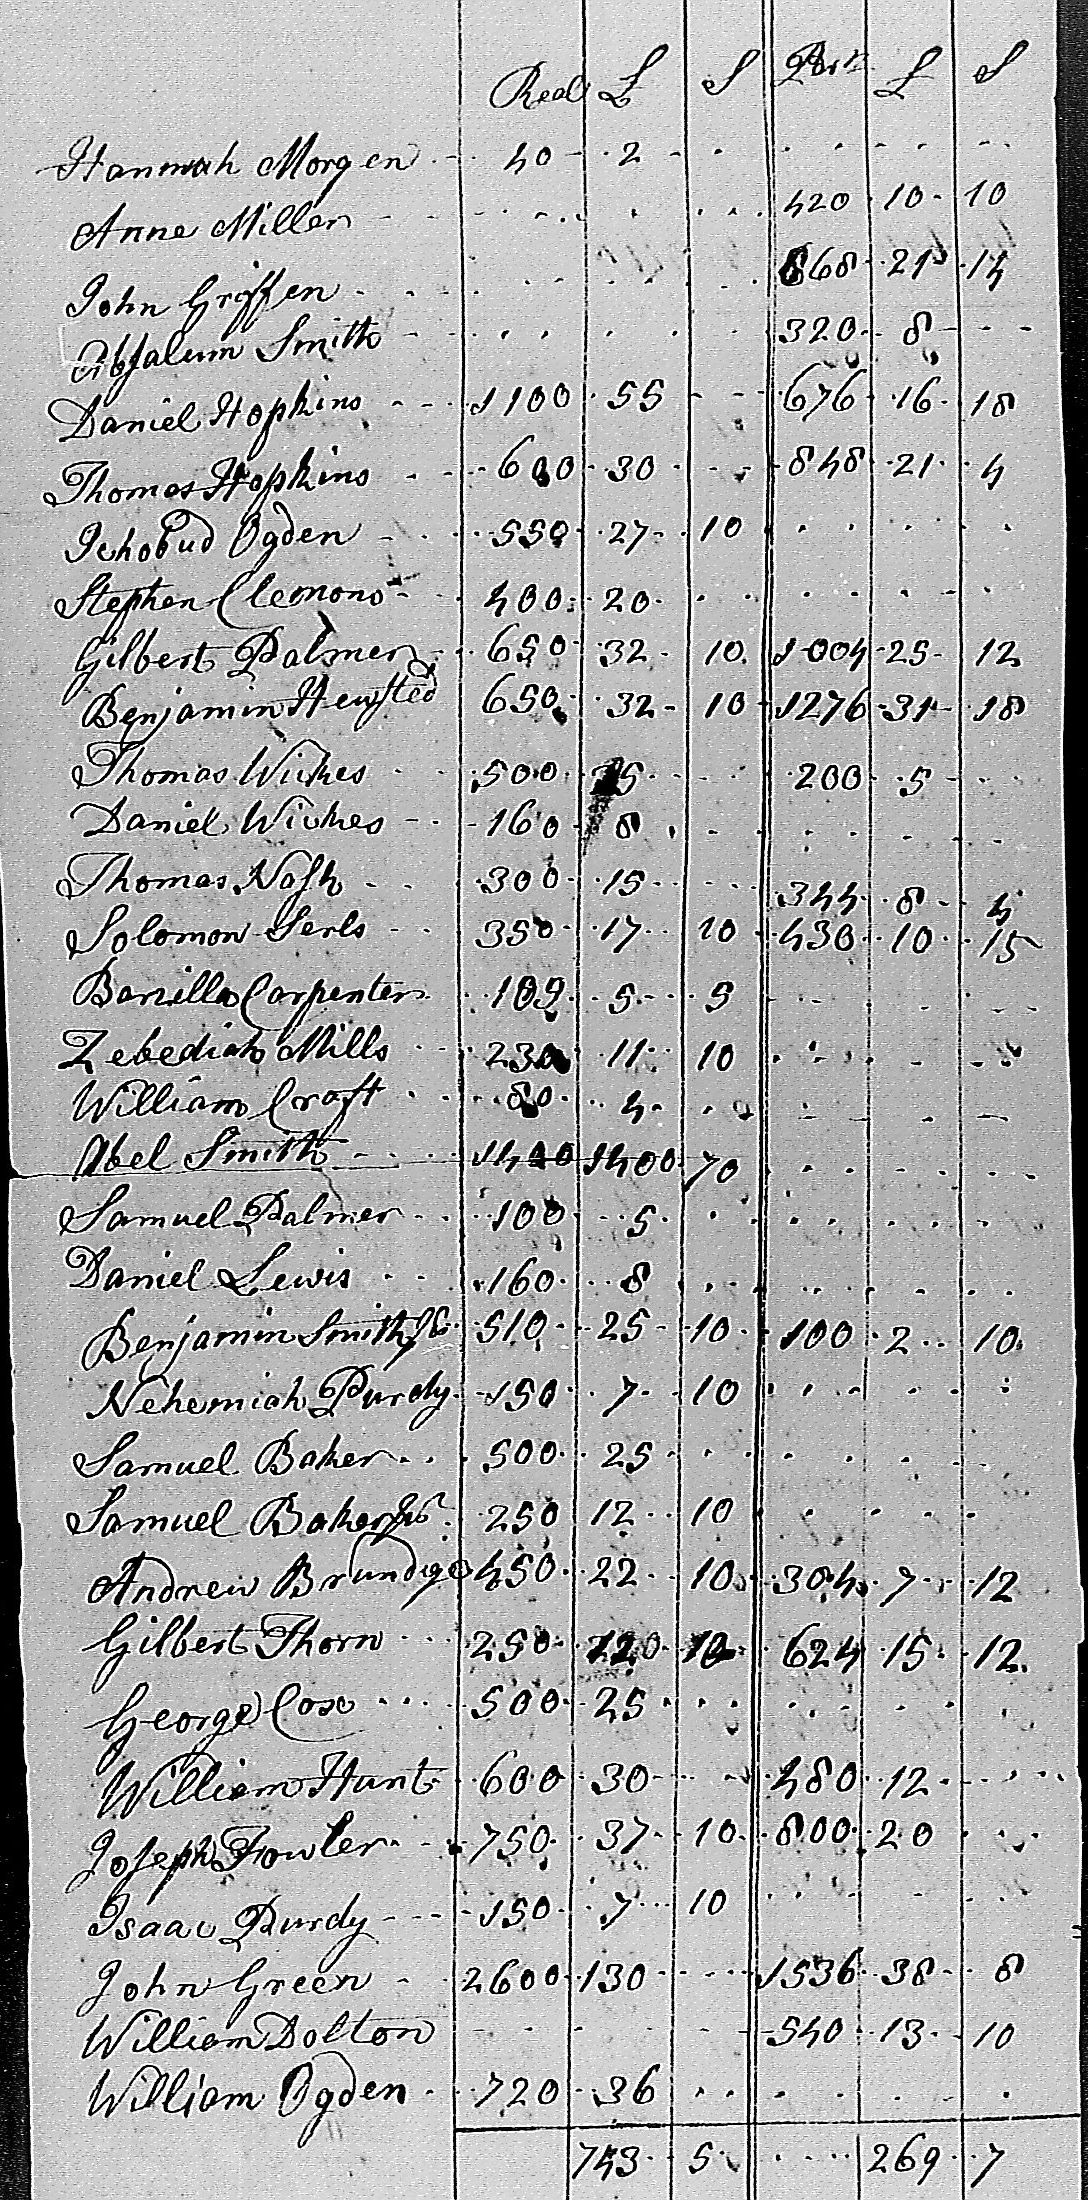 Real £ S Pers £ S
Hannah Morgen 40 2
Anne Miller 420 10 10
John Griffen 868 21 14
Absalum Smith 320 8
Daniel Hopkins 1100 55 676 16 18
Thomas Hopkins 600 30 848 21 4
Ichobud Ogden 550 27 10
Stephen Clemons 400 20
Gilbert Palmer 650 32 10 1004 25 12
Benjamin Hewsted 650 32 10 1276 31 18
Thomas Wickes 500 25 200 5
Daniel Wickes 160 8
Thomas Nash 300 15 344 8 4
Solomon Serls 350 17 10 430 10 15
Barzilla Carpenter 109 5 5
Zebediah Mills 230 11 10
William Craft 80 4
Abel Smith 1400 1400 70
Samuel Palmer 100 5
Daniel Lewis 160 8
Benjamin Smith Jr 510 25 10 100 2 10
Nehemiah Purdy 150 7 10
Samuel Baker 500 25
Samuel Baker Jr 250 12 10
Andrew Brundige 450 22 10 304 7 12
Gilbert Thorn 250 12 10 624 15 12
George Coso 500 25
William Hunt 600 30 480 12
Joseph Fowler 750 37 10 800 20
Isaac Purdy 150 7 10
John Green 2600 130 1536 38 8
William Dolton 540 13 10
William Ogden 720 36
743 5 269 7